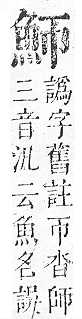 魳
譌字舊註帀沓師
三音汎云魚名誤